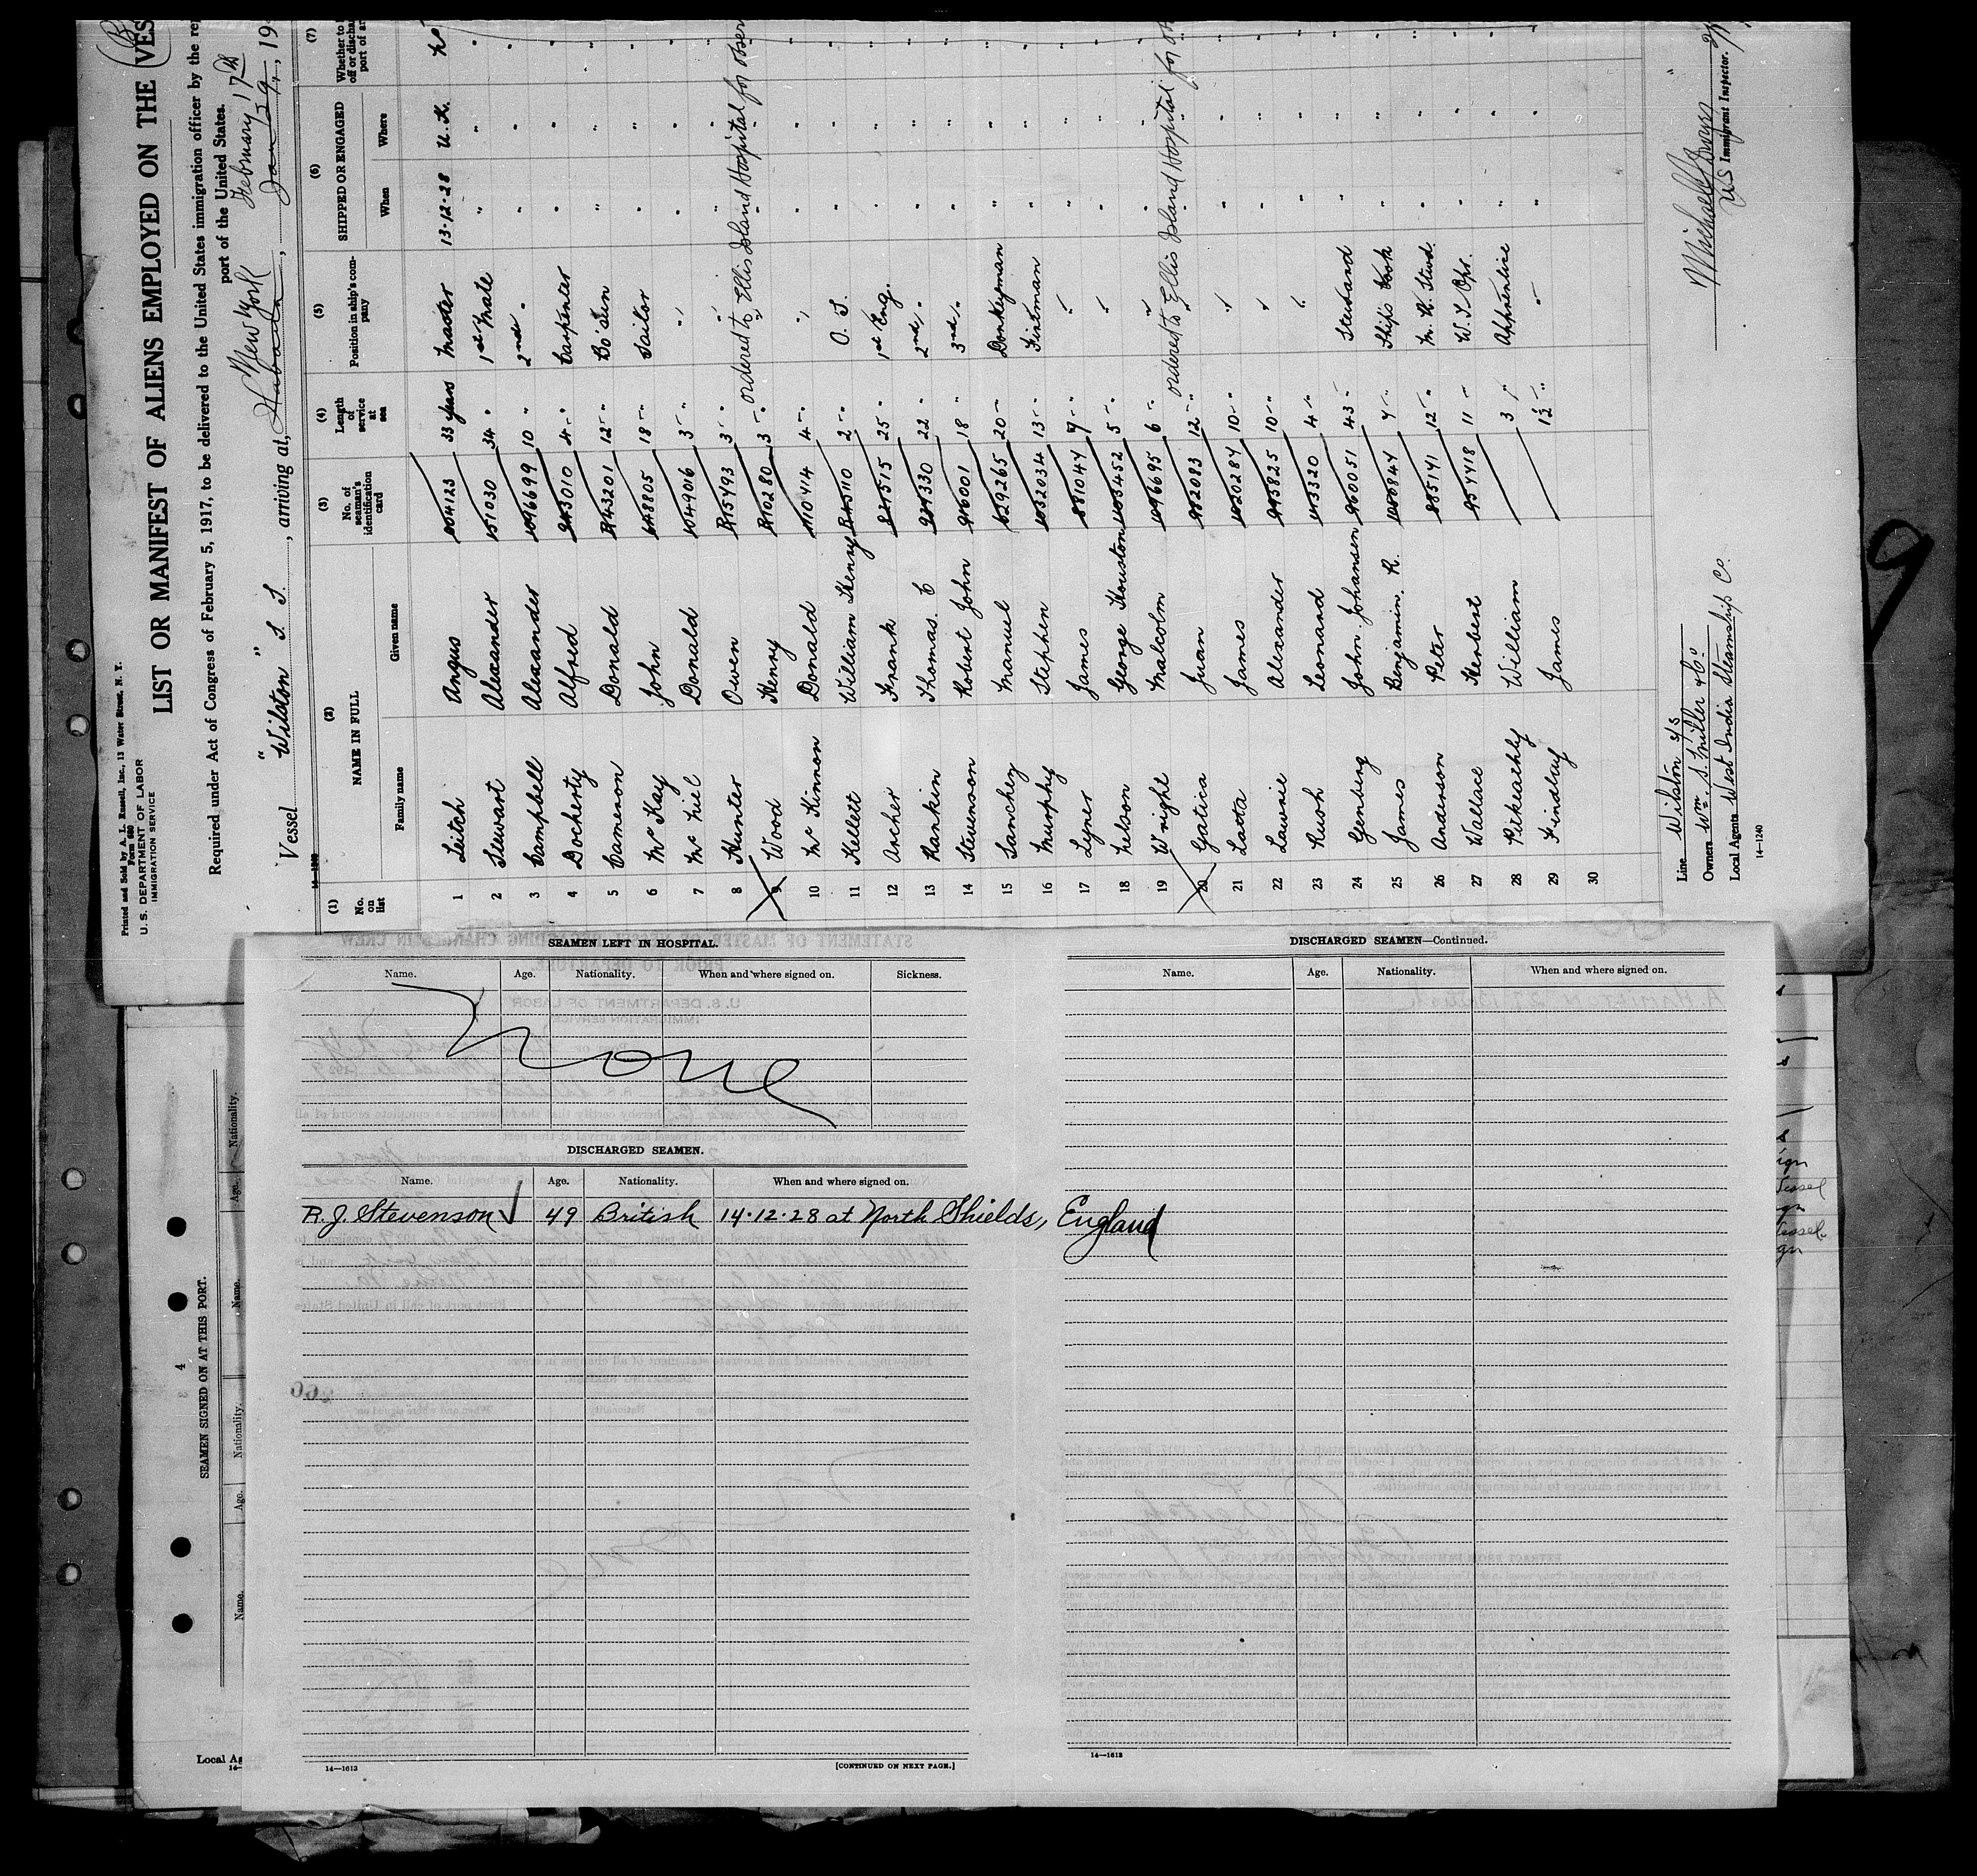 Printed and Sold by A. L. Russell, Inc., 13 Water Street, N. Y.
Form 680
U. S. DEPARTMENT OF LABOR
IMMIGRATION SERVICE
LIST OR MANIFEST OF ALIENS EMPLOYED ON THE VES
Required under Act of Congress of February 5, 1917, to be delivered to the United States immigration officer by the rep
port of the United States.
New York February 17th
Vessel "Wilston" S. S. , arriving at, Habana , Jan / 29 , 19
(1) No. on list
(2) NAME IN FULL
Family name Given name
(3) No. of seaman's identification card
(4) Length of service at sea
(5) Position in ship's company
(6) SHIPPED OR ENGAGED
When Where
(7) Whether to
off or discha
port of a
1 Leitch Angus 004123 33 years Master 13-12-28 U. K. No
2 Stewart Alexander 151030 34 " 1st Mate " "
3 Campbell Alexander 1096699 10 " 2nd " " "
4 Docherty Alfred 243010 4 " Carpenter " "
5 Cameron Donald R143201 12 " Bo'sun " "
6 McKay John 648805 18 " Sailor " "
7 McNiel Donald 1049016 3 " " " "
8 Hunter Owen R15493 3 " " " "
9 Wood Henry R110280 3 " " ordered to Ellis Island Hospital for obser
10 McKinnon Donald 1110414 4 " " " "
11 Kellett William Henry R45110 2 " O. S. " "
12 Archer Frank 821515 25 " 1st Eng. " "
13 Rankin Thomas. C 924330 22 " 2nd " " "
14 Stevenson Robert John 916001 18 " 3rd " " "
15 Sanchez Manuel 629265 20 Donkeyman " "
16 Murphy Stephen 1032034 13 " Fireman " "
17 Lyner James 881044 7 " " " "
18 Nelson George Houston 1103452 5 " " " "
19 Wright Malcolm 1096695 6 " " " "
20 Gatica Juan 952083 12 " " ordered to Ellis Island Hospital for obs
21 Latta James 1020284 10 " " " "
22 Lawrie Alexander 995825 10 " " " "
23 Rush Leonard 1133320 4 " " " "
24 Genberg John Johansen 960051 43 " Steward " "
25 James Benjamin. R. 1080844 4 " Ships Cook " "
26 Anderson Peter 885141 12 " M. R. Stwd. " "
27 Wallace Herbert 954418 11 " W. T. Opr. " "
28 Pitkeathly William 3 " Apprentice " "
29 Findlay James 1½ " " " "
30
Line Wilston s/s
Owners Wm. S. Miller & Co.
Local Agents West India Steamship Co.
14-1240
U S Immigrant Inspector.
9
SEAMEN LEFT IN HOSPITAL.
Name. Age. Nationality. When and where signed on. Sickness.
None
DISCHARGED SEAMEN.
Name. Age. Nationality. When and where signed on.
R. J. Stevenson √ 49 British 14-12-28 at North Shields, England
14—1613
[CONTINUED ON NEXT PAGE.]
DISCHARGED SEAMEN—Continued.
Name. Age. Nationality. When and where signed on.
14—1613
4
SEAMEN SIGNED ON AT THIS PORT.
Name. Age. Nationality. Name. Age. Nationality.
Local Ag
14-